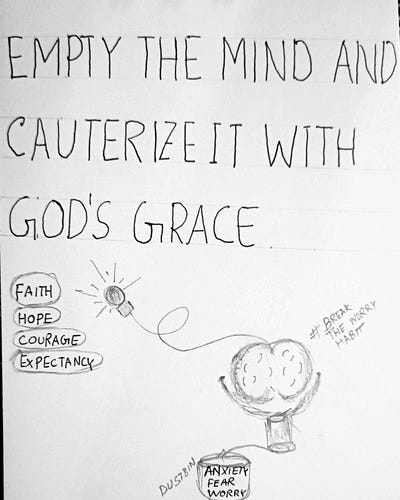 EMPTY THE MIND AND
CAUTERIZE IT WITH
GOD'S GRACE.
FAITH
HOPE
COURAGE
EXPECTANCY
# BREAK
THE WORRY
HABIT
DUSTBIN
ANXIETY
FEAR
WORRY